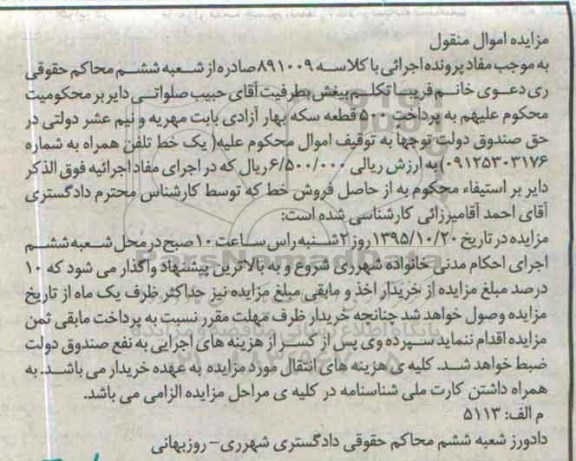 مزایده اموال منقول
به موجب مفاد پرونده اجرائی با کلاسه ۸۹۱۰۰۹ صادره از شعبه ششم محاکم حقوقی
ری دعوی خانم فریبا تکلم بیغش بطرفیت آقای حبیب صلواتی دایر بر محکومیت
محکوم علیهم به پرداخت ۵۰۰ قطعه سکه بهار آزادی بابت مهریه و نیم عشر دولتی در
حق صندوق دولت توجها به توقیف اموال محکوم علیه( یک خط تلفن همراه به شماره
۰۹۱۲۵۳۰۳۱۷۶) به ارزش ریالی ۶/۵۰۰/۰۰۰ریال که در اجرای مفاد اجرائیه فوق الذکر
دایر بر استیفاء محکوم به از حاصل فروش خط که توسط کارشناس محترم دادگستری
آقای احمد آقامیرزائی کارشناسی شده است:
مزایده در تاریخ ۱۳۹۵/۱۰/۲۰روز ۲شنبه راس ساعت ۱۰ صبح در محل شعبه ششم
اجرای احکام مدنی خانواده شهرری شروع و به بالاترین پیشنهاد واگذار می شود که ۱۰
درصد مبلغ مزایده از خریدار اخذ و مابقی مبلغ مزایده نیز حداکثر ظرف یک ماه از تاریخ
مزایده وصول خواهد شد چنانچه خریدار ظرف مهلت مقرر نسبت به پرداخت مابقی ثمن
مزایده اقدام ننماید سپرده وی پس از کسر از هزینه های اجرایی به نفع صندوق دولت
ضبط خواهد شد. کلیه ی هزینه های انتقال مورد مزایده به عهده خریدار می باشد. به
همراه داشتن کارت ملی شناسنامه در کلیه ی مراحل مزایده الزامی می باشد.
م الف: ۵۱۱۳
دادورز شعبه ششم محاکم حقوقی دادگستری شهرری- روزبهانی
ParsNamadData